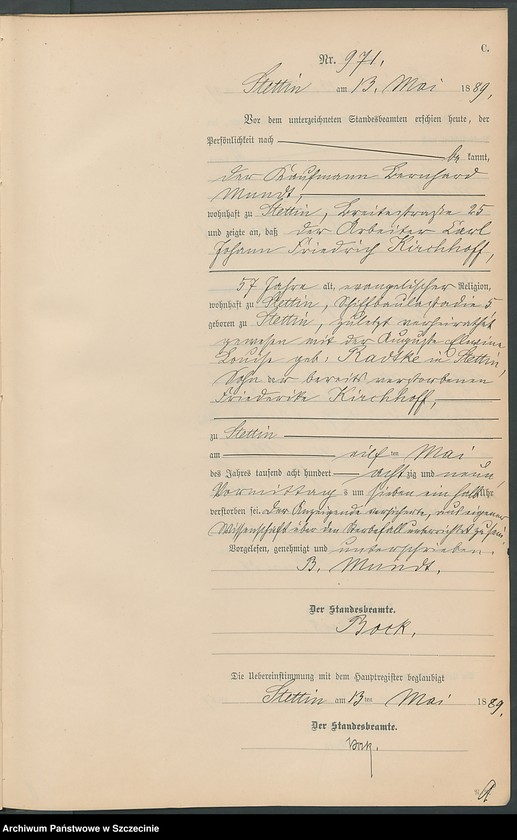 C.
Nr. 971.
Stettin am 13. Mai 1889,
Vor dem unterzeichneten Standesbeamten erschien heute, der
Persönlichkeit nach
be kannt,
der Kaufmann Bernhard
Mundt,
wohnhaft zu Stettin, Breitestraße 25
und zeigte an, daß der Arbeiter Carl
Johann Friedrich Kirchhoff,
57 Jahre alt, evangelischer Religion,
wohnhaft zu Stettin, Schiffbaulastadie 5
geboren zu Stettin, zuletzt verheirathet
gewesen mit der Auguste Elwine
Louise geb: Radtke in Stettin,
Sohn der bereits verstorbenen
Friederike Kirchhoff,
zu Stettin
am eilf ten Mai
des Jahres tausend acht hundert achtzig und neun
Vormittags um sieben ein halb Uhr
verstorben sei. Der Anzeigende versicherte, aus eigener
Wissenschaft über den Sterbefall unterrichtet zu sein.
Vorgelesen, genehmigt und unterschrieben.
B. Mundt.
Der Standesbeamte.
Bock.
Die Uebereinstimmung mit dem Hauptregister beglaubigt
Stettin am 13ten Mai 1889.
Der Standesbeamte.
Bock.
Archiwum Państwowe w Szczecinie